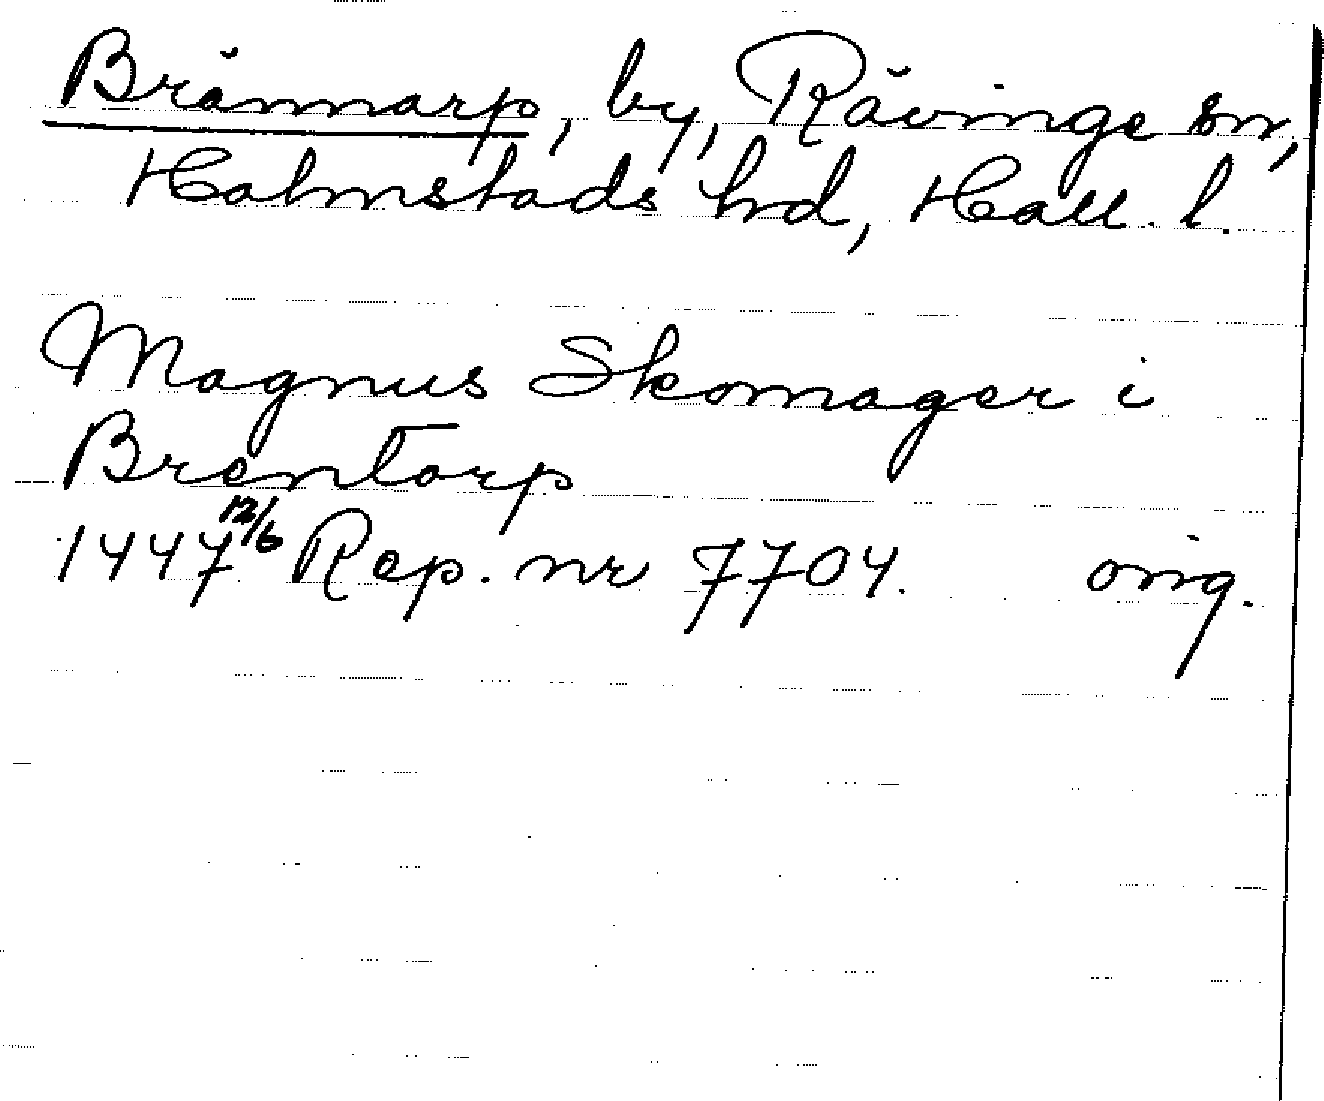 Brännarp, by, Rävinge sn,
Halmstads hd, Hall. l.
Magnus Skomager i
Brentorp
1447 12/6 Rep. nr 7704. orig.